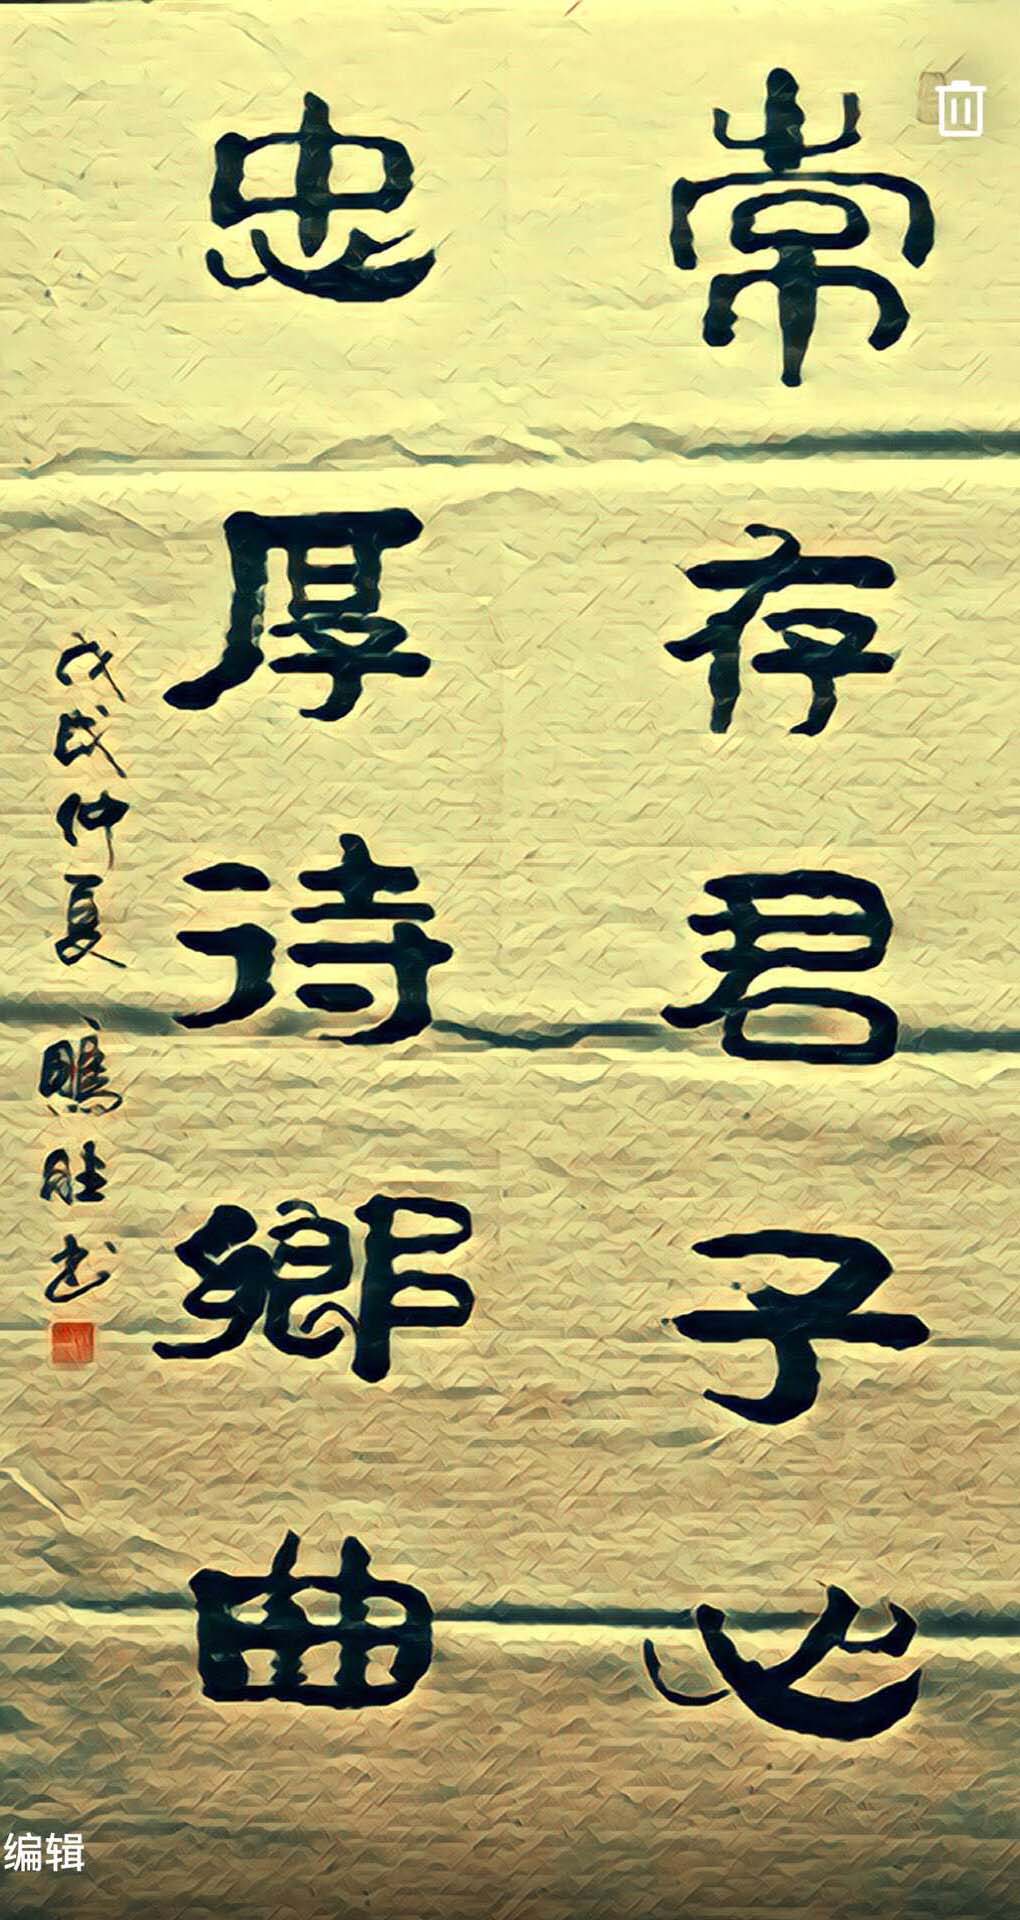 常存君子心
忠厚待鄉曲
戊戌仲夏 鵬胜书
编辑